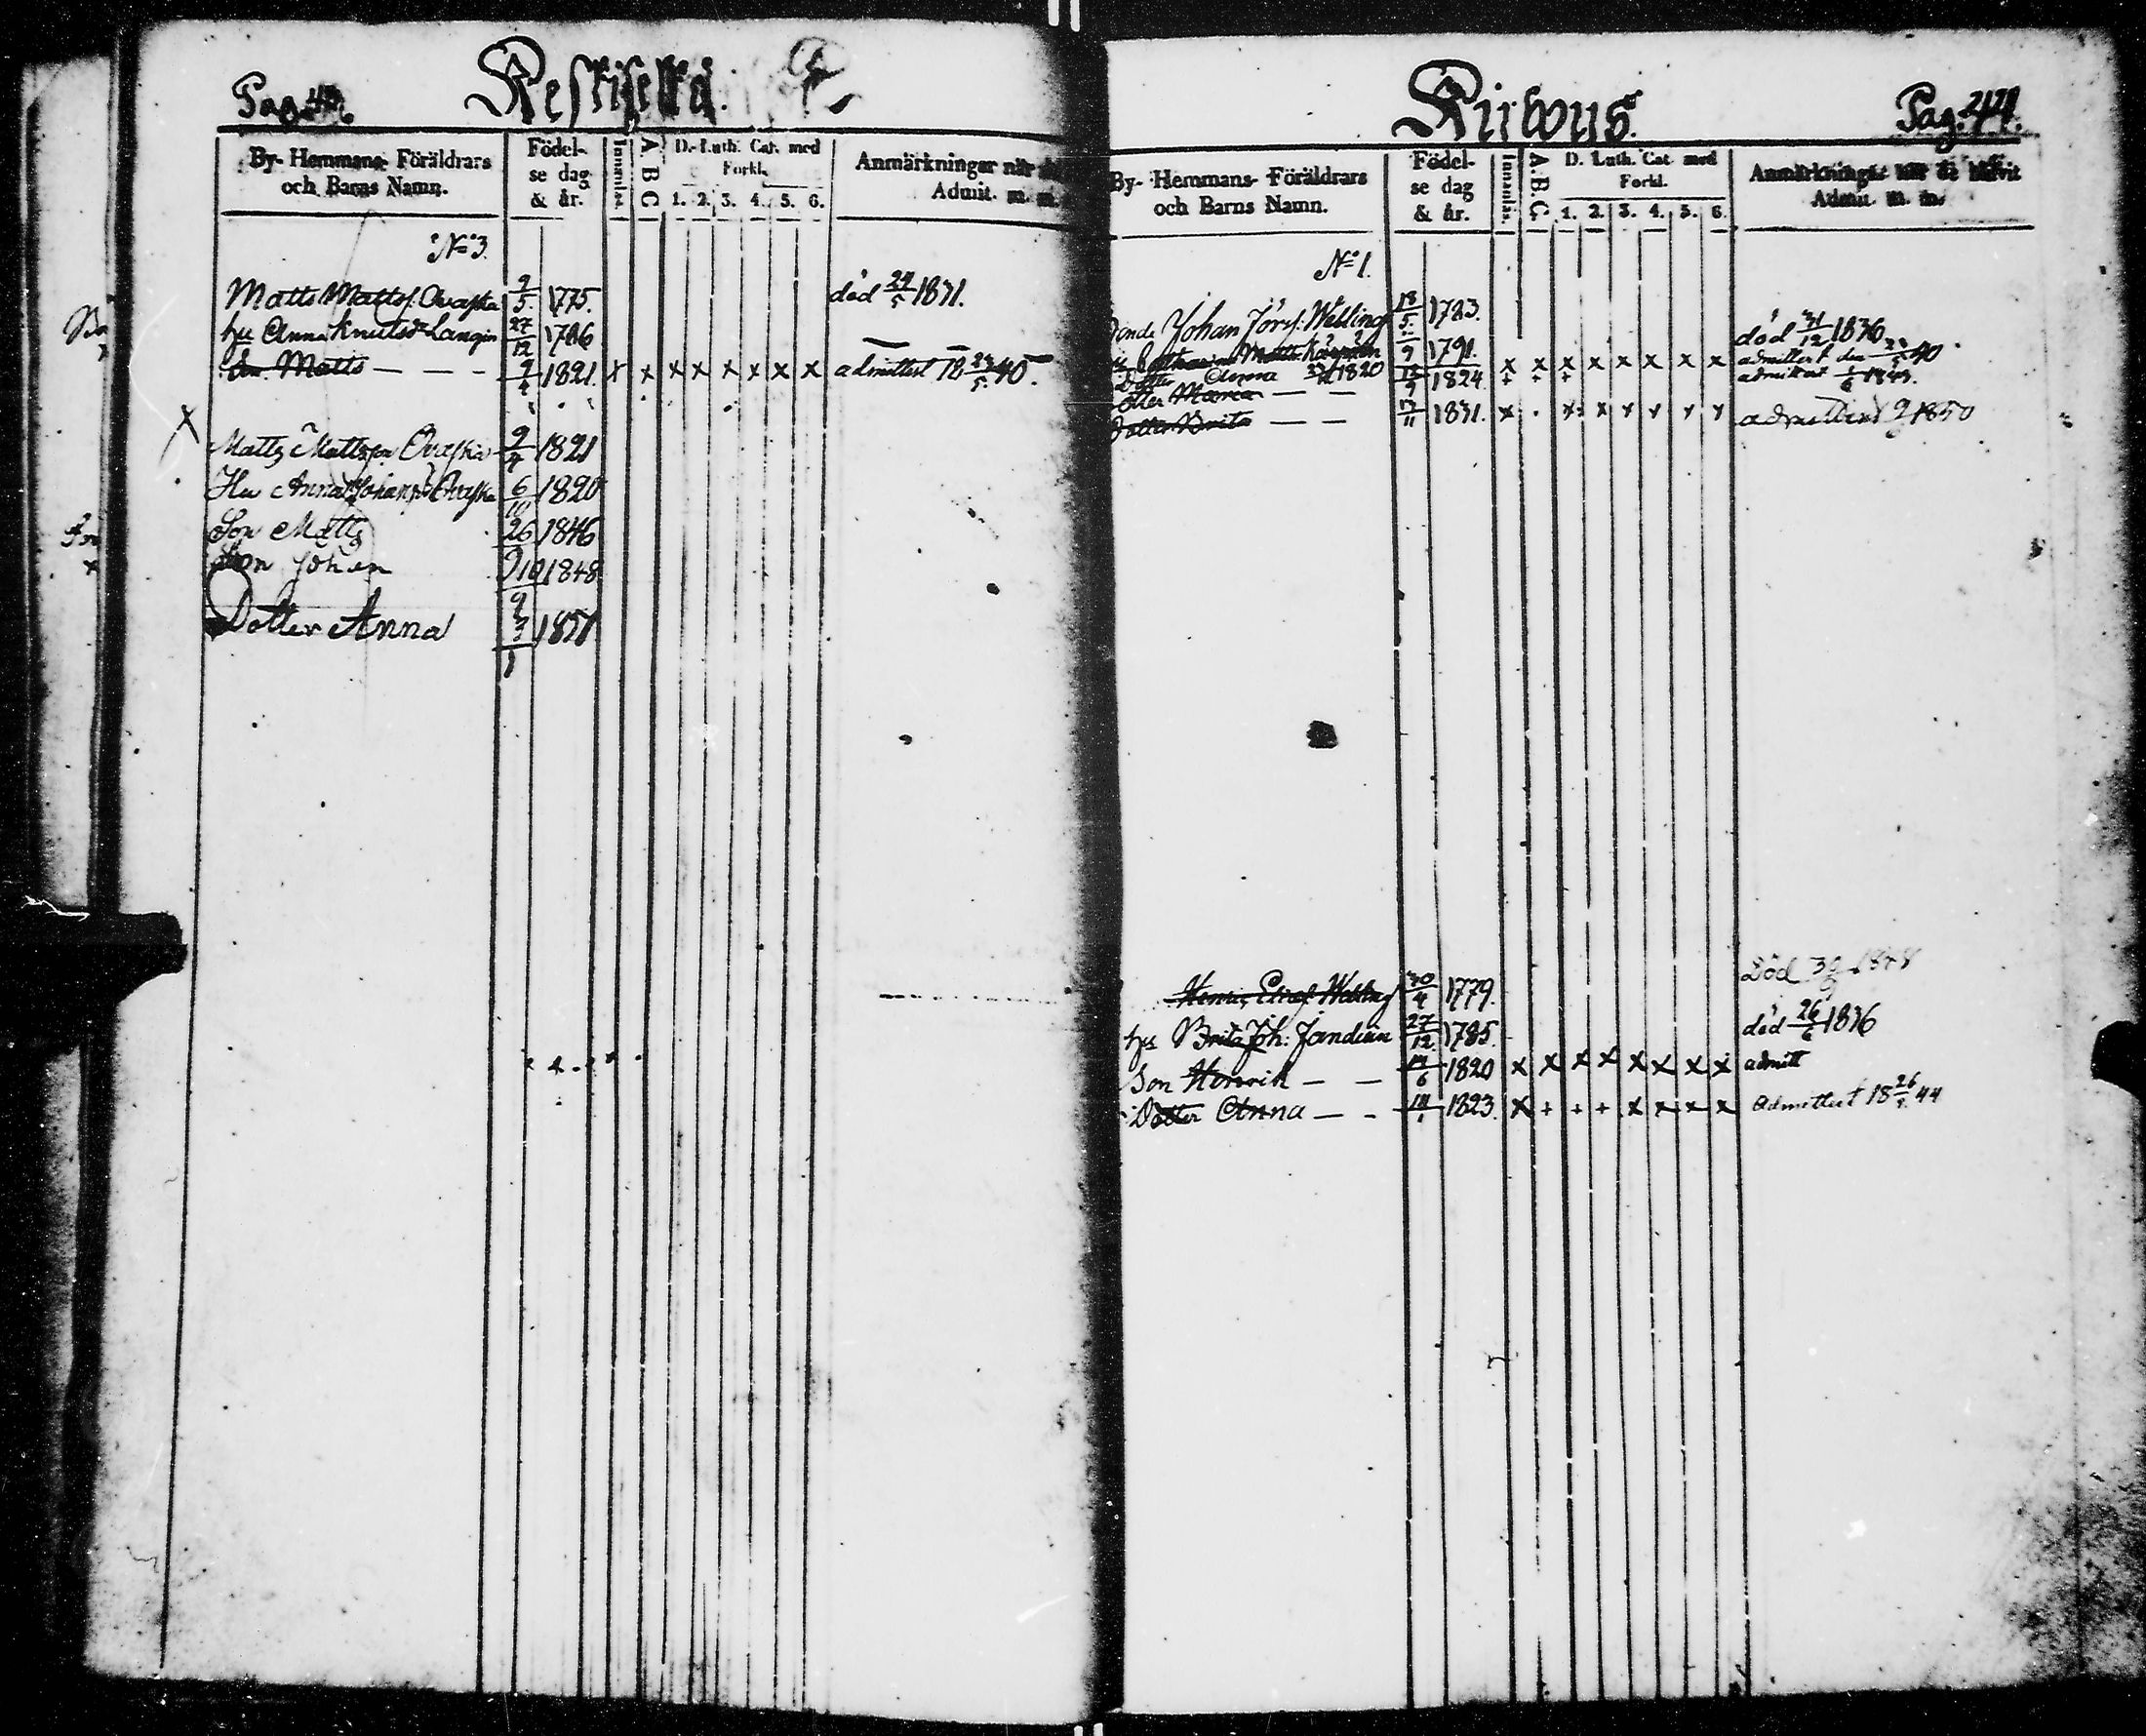 Keskiselkä.
By- Hemmans- Föräldrars och Barns Namn.
Födelse dag & år.
Innanläs.
A. B C
D. Luth. Cat. med Forkl.
1. 2. 3. 4. 5. 6.
Anmärkningar när
Admit. m. m.
No 3.
Matts Mattss. Ovaska 9/5 1775. död 24/5 1831.
hu Anna Knutsdr Langin 27/12 1786
Son Matts — — — 9/4 1821. x x x x x x x x admittert 18 /5 40.
Matts Mattsson Ovaska 9/4 1821
Hu Anna Johansd Ovaska 6/10 1820
Son Matts 26/9 1846
Son Johan 10/9 1848
Dotter Anna 3/1 1851
Kiibous.
By- Hemmans- Föräldrars och Barns Namn.
Födelse dag & år.
Innanläs.
A. B C
D. Luth. Cat. med Forkl.
1. 2. 3. 4. 5. 6.
Anmärkningar när de blifvit
Admit. m. m.
No 1.
Johan Jörss: Webling 18/5 1783. död 31/12 1836
Catharina Matts 9 1791.
Dotter Anna 1820 x x x x x x x x admittert den 40.
Dotter Maria — — 1824 + + + admittert 1/6 1843.
Dotter Brita — — 17/11 1831. x . x x x x x x admitterad 1850
Henric Ericss. Webling 30/4 1779. Död 30 1848
hu Brita Joh: Jandiain 27/12 1785. död 26/6 1836
Son Henrik — — 14/6 1820 x x x x x x x x admitt
Dotter Anna — — 1823. x + + + x x x x admittert 18 26/5 44